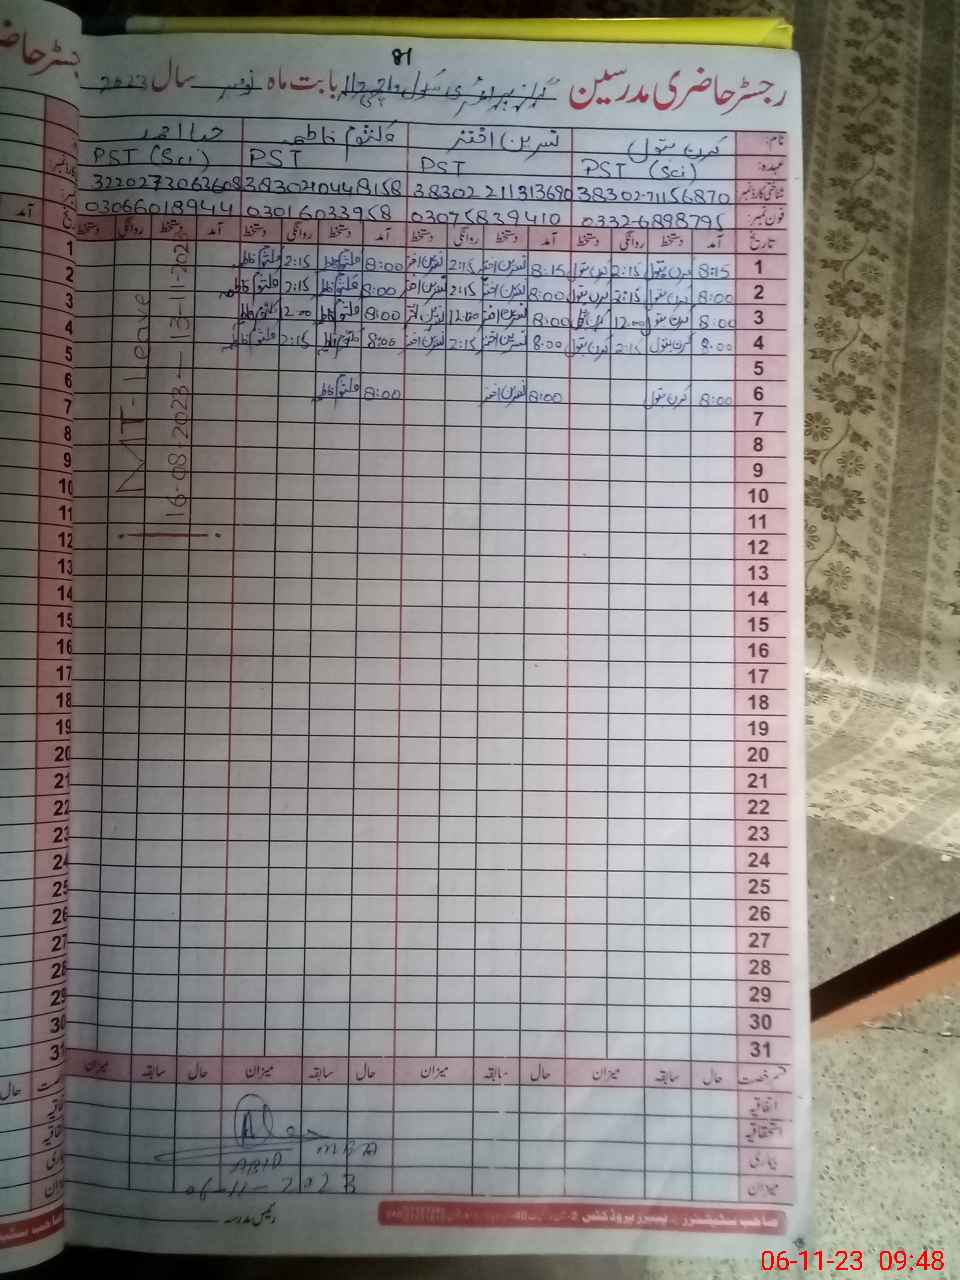 81
رجسٹر حاضری مدرسین گرلز پرائمری سکول بابت ماہ نومبر سال 2023
نام: کرن بتول نسرین اختر کلثوم فاطمہ
عہدہ: PST (Sci) PST PST PST (Sci)
شناختی کارڈ نمبر: 38302-71156870 38302211313690 3830210448158 3220273063608
فون نمبر: 0332-6898795 03075839410 03016033958 03066018944
تاریخ آمد دستخط روانگی دستخط آمد دستخط روانگی دستخط آمد دستخط روانگی دستخط آمد دستخط روانگی دستخط
1 8:15 کرن بتول 2:15 کرن بتول 8:15 نسرین اختر 2:15 نسرین اختر 8:00 کلثوم فاطمہ 2:15 کلثوم فاطمہ
2 8:00 کرن بتول 2:15 کرن بتول 8:00 نسرین اختر 2:15 نسرین اختر 8:00 کلثوم فاطمہ 2:15 کلثوم فاطمہ
3 8:00 کرن بتول 12:00 کرن بتول 8:00 نسرین اختر 12:00 نسرین اختر 8:00 کلثوم فاطمہ 12:00 کلثوم فاطمہ
4 8:00 کرن بتول 2:15 کرن بتول 8:00 نسرین اختر 2:15 نسرین اختر 8:00 کلثوم فاطمہ 2:15 کلثوم فاطمہ
5
6 8:00 کرن بتول 8:00 نسرین اختر 8:00 کلثوم فاطمہ
MT-Leave
16-08-2023 — 13-11-202
7
8
9
10
11
12
13
14
15
16
17
18
19
20
21
22
23
24
25
26
27
28
29
30
31
قسم رخصت حال سابقہ میزان حال سابقہ میزان حال سابقہ میزان حال سابقہ میزان
اتفاقیہ
استحقاقیہ
بیماری
میزان
ABID
06-11-2023
رئیس مدرسہ
06-11-23 09:48